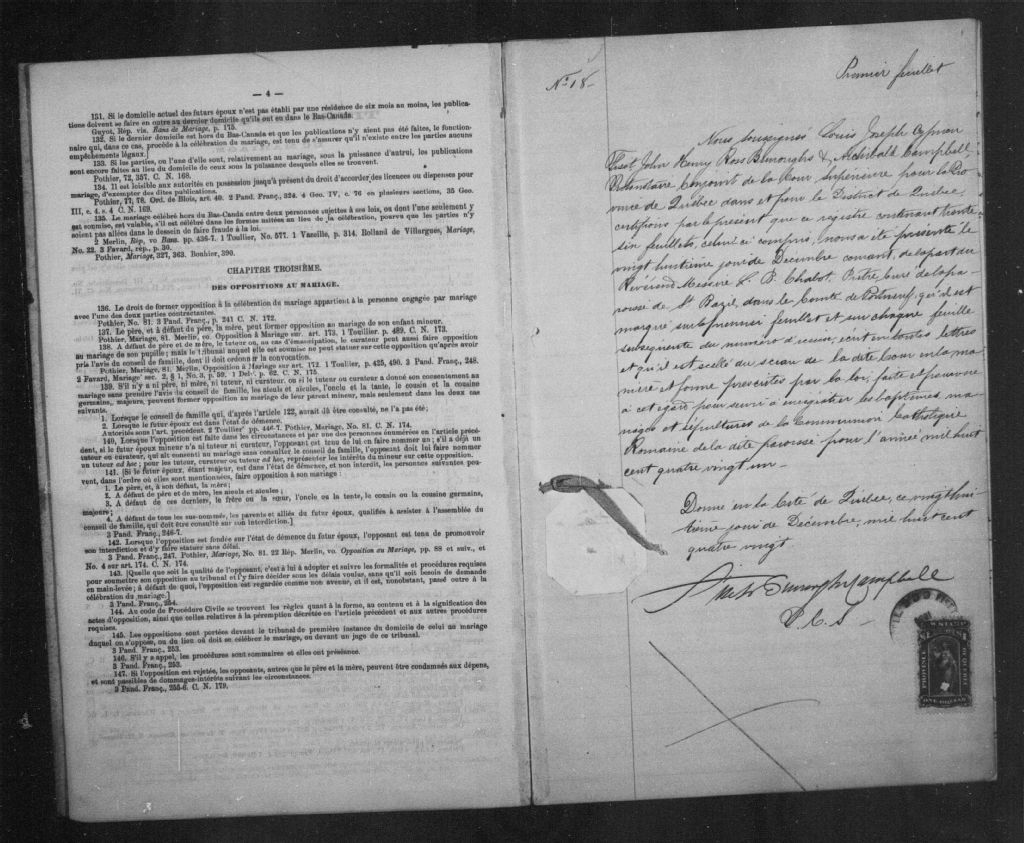 — 4 —
131. Si le domicile actuel des futurs époux n'est pas établi par une résidence de six mois au moins, les publica-
tions doivent se faire en outre au dernier domicile qu'ils ont eu dans le Bas-Canada.
Guyot, Rép. vis. Bans de Mariage, p. 175.
132. Si le dernier domicile est hors du Bas-Canada et que les publications n'y aient pas été faites, le fonction-
naire qui, dans ce cas, procède à la célébration du mariage, est tenu de s'assurer qu'il n'existe entre les parties aucuns
empêchements légaux.]
133. Si les parties, ou l'une d'elles, sont, relativement au mariage, sous la puissance d'autrui, les publications
sont encore faites au lieu du domicile de ceux sous la puissance desquels elles se trouvent.
Pothier, 72, 357. C. N. 168.
134. Il est loisible aux autorités en possession jusqu'à présent du droit d'accorder des licences ou dispenses pour
mariage, d'exempter des dites publications.
Pothier, 77, 78. Ord. de Blois, art. 40. 2 Pand. Franç., 324. 4 Geo. IV, c. 76 en plusieurs sections, 35 Geo.
III, c. 4. s. 4 C. N. 169.
135. Le mariage célébré hors du Bas-Canda entre deux personnes sujettes à ses lois, ou dont l'une seulement y
est soumise, est valable, s'il est célébré dans les formes usitées au lieu de la célébration, pourvu que les parties n'y
soient pas allées dans le dessein de faire fraude à la loi.
2 Merlin, Rép, vo Bans. pp. 436-7. 1 Toullier, No. 577. 1 Vazeille, p. 314. Rolland de Villargues, Mariage,
No. 22. 3 Favard, rép., p. 30.
Pothier, Mariage, 327, 363. Bouhier, 390.
CHAPITRE TROISIÈME.
DES OPPOSITIONS AU MARIAGE.
136. Le droit de former opposition à la célébration du mariage appartient à la personne engagée par mariage
avec l'une des deux parties contractantes.
Pothier, No. 81. 3 Pand. Franç., p. 241 C. N. 172.
137. Le père, et à défaut du père, la mère, peut former opposition au mariage de son enfant mineur.
Pothier, Mariage, 81. Merlin, vo. Opposition à Mariage sur. art. 173. 1 Touillier. p. 489. C. N. 173.
138. A défaut de père et de mère, le tuteur ou, au cas d'émancipation, le curateur peut aussi faire opposition
au mariage de son pupille; mais le tribunal auquel elle est soumise ne peut statuer sur cette opposition qu'après avoir
pris l'avis du conseil de famille, dont il doit ordonner la convocation.
Pothier, Mariage, 81. Merlin, Opposition à Mariage sur art. 172. 1 Toullier, p. 425, 490. 3 Pand. Franç., 248.
2 Favard, Mariage sec. 2, § 1, No. 3, p. 59. 1 Delv. p. 62. C. N. 175.
139. S'il n'y a ni père, ni mère, ni tuteur, ni curateur, ou si le tuteur ou curateur a donné son consentement au
mariage sans prendre l'avis du conseil de famille, les aïeuls et aïeules, l'oncle et la tante, le cousin et la cousine
germains, majeurs, peuvent former opposition au mariage de leur parent mineur, mais seulement dans les deux cas
suivants.
1. Lorsque le conseil de famille qui, d'après l'article 122, aurait dû être consulté, ne l'a pas été;
2. Lorsque le futur époux est dans l'état de démence.
Autorités sous l'art. précédent. 2 Toullier pp. 446-7. Pothier, Mariage, No. 81. C. N. 174.
140. Lorsque l'opposition est faite dans les circonstances et par une des personnes énumérées en l'article précé-
dent, si le futur époux mineur n'a ni tuteur ni curateur, l'opposant est tenu de lui en faire nommer un; s'il a déjà un
tuteur ou curateur, qui ait consenti au mariage sans consulter le conseil de famille, l'opposant doit lui faire nommer
un tuteur ad hoc; pour les tuteur, curateur ou tuteur ad hoc, représenter les intérêts du mineur sur cette opposition.
141. [Si le futur époux, étant majeur, est dans l'état de démence, et non interdit, les personnes suivantes peu-
vent, dans l'ordre où elles sont mentionnées, faire opposition à son mariage:
1. Le père, et, à son défaut, la mère;
2. A défaut de père et de mère, les aïeuls et aïeules;
3. A défaut de ces derniers, le frère ou la sœur, l'oncle ou la tente, le cousin ou la cousine germains,
majeurs;
4. A défaut de tous les sus-nommés, les parents et alliés du futur époux, qualifiés à assister à l'assemblée du
conseil de famille, qui doit être consulté sur son interdiction.]
3 Pand. Franç., 246-7.
142. Lorsque l'opposition est fondée sur l'état de démence du futur époux, l'opposant est tenu de promouvoir
son interdiction et d'y faire statuer sans délai.
3 Pand. Franç., 247. Pothier, Mariage, No. 81. 22 Rép. Merlin, vo. Opposition au Mariage, pp. 88 et suiv., et
No. 4 sur art. 174. C. N. 174.
143. [Quelle que soit la qualité de l'opposant, c'est à lui à adopter et suivre les formalités et procédures requises
pour soumettre son opposition au tribunal et l'y faire décider sous les délais voulus, sans qu'il soit besoin de demande
en main-levée; à défaut de quoi, l'opposition est regardée comme non avenue, et il est, nonobstant, passé outre à la
célébration du mariage.]
3 Pand. Franç., 254.
144. Au code de Procédure Civile se trouvent les règles quant à la forme, au contenu et à la signification des
actes d'opposition, ainsi que celles relatives à la péremption décrétée en l'article précédent et aux autres procédures
requises.
145. Les oppositions sont portées devant le tribunal de première instance du domicile de celui au mariage
duquel on s'oppose, ou du lieu où doit se célébrer le mariage, ou devant un juge de ce tribunal.
3 Pand. Franç., 253.
146. S'il y a appel, les procédures sont sommaires et elles ont préséance.
3 Pand. Franç., 253.
147. Si l'opposition est rejetée, les opposants, autres que le père et la mère, peuvent être condamnés aux dépens,
et sont passibles de dommages-intérêts suivant les circonstances.
3 Pand. Franç., 255-6. C. N. 179.
No. 18-
Premier feuillet
Nous soussignés Louis Joseph Cyprien
Fiset John Henry Ross Burroughs & Archibald Campbell
Protonotaire Conjoint de la Cour Supérieure pour la Pro
vince de Québec dans et pour le District de Québec
certifions par le présent que ce régistre contenant trente
six feuillets, celui ci compris, nous a été presenté le
vingt huitième jour de Decembre courant, de la part du
Révérend Messire F. B. Chabot. Prêtre Curé de la pa-
roisse de St Bazil, dans le Comté de Portneuf, qu'il est
marqué sur le premier feuillet et sur chaque feuille
subséquente du numéro d'icieux, écrit en toutes lettres
et qu'il est scellé du sceau de la dite Cour en la ma-
nière et forme prescrites par la loi, faite et pourvue
à cet égard pour servir à enregistrer les baptêmes ma-
riages et sépultures de la Communion Catholique
Romaine de la dite paroisse pour l'année mil huit
cent quatre vingt un-
Donné en la Cité de Québec, ce vingt hui-
tième jour de Décembre, mil huit cent
quatre vingt
Fiset Burroughs Campbell
P. C. S
STAMP
$1 $1
PROVINCE OF QUEBEC
ONE DOLLAR